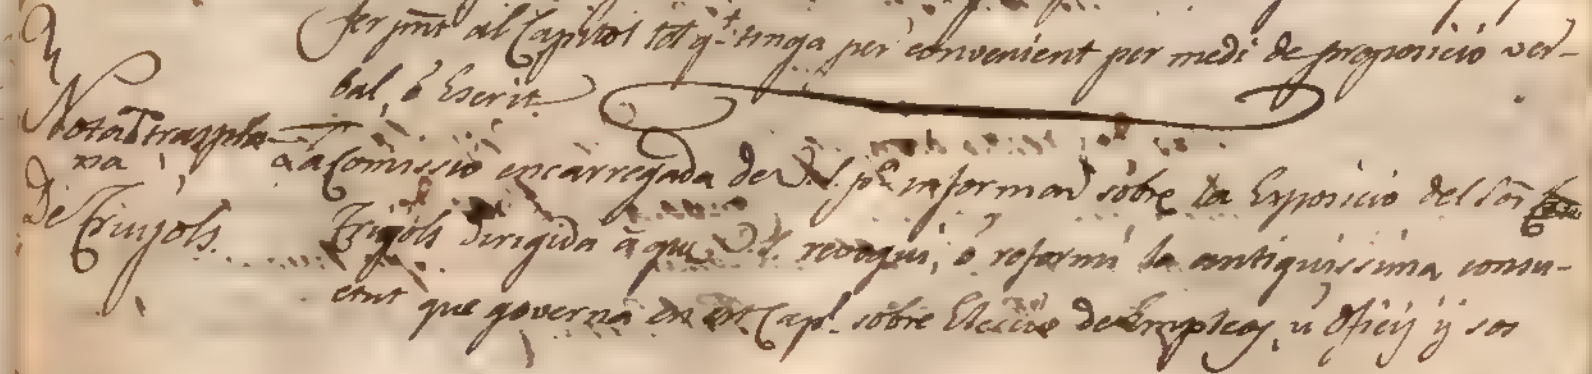 fer pnt. al Capitol tot q.t tinga per convenient per medi de proposició ver-
bal, ó Escrit
Nota
De Friujols.
La Comissió encarregada de V.S. pa. informar sobre la Exposició del Sor.
Frigols dirigida á que V.S. revoqui, ó reformi la antiquissima consu-
etut que governa en est Capl. sobre Elecció de Empleos, ú Oficis y sos